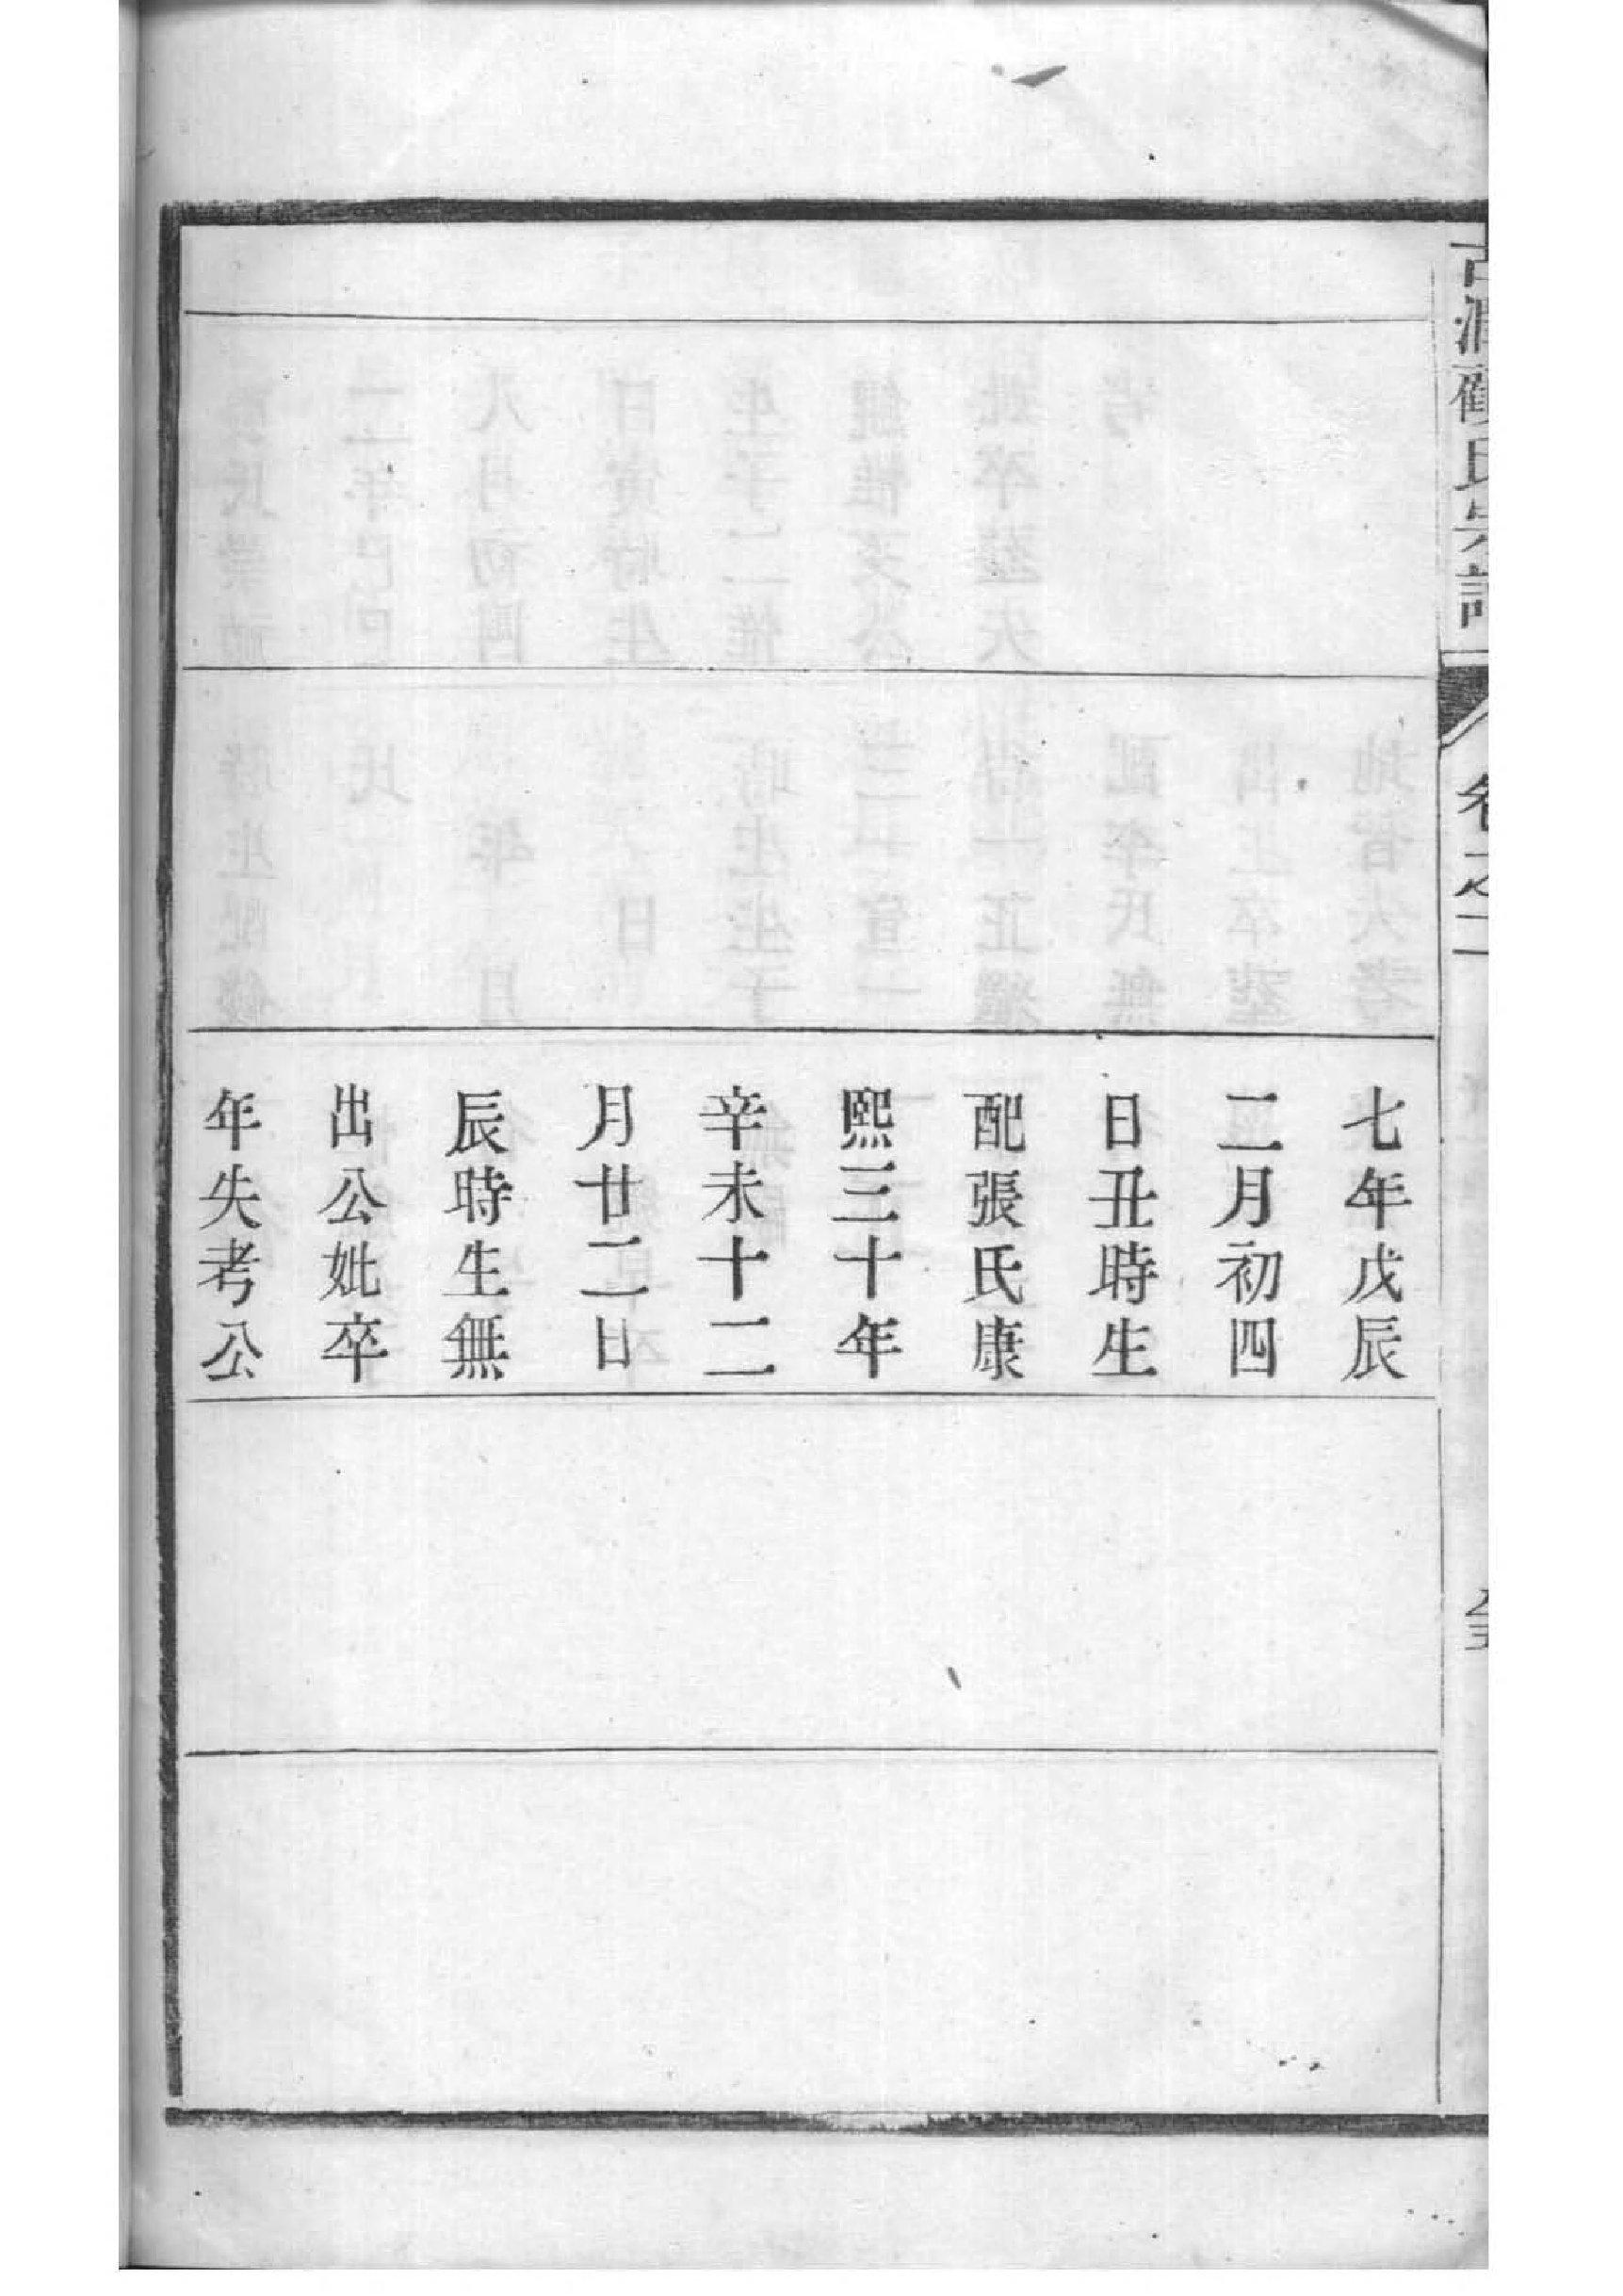 氏宗譜
卷之二
七年戊辰
二月初四
日丑時生
配張氏康
熙三十年
辛未十二
月廿二日
辰時生無
出公妣卒
年失考公